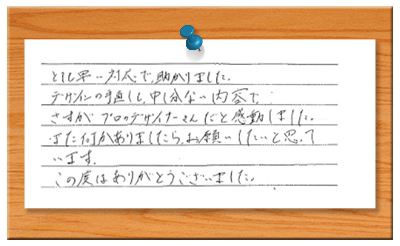 とても早い対応で、助かりました。
デザインの手直しも、申し分ない内容で、
さすが プロのデザイナーさんだと感動しました。
また何かありましたら、お願いしたいと思って
います。
この度はありがとうございました。